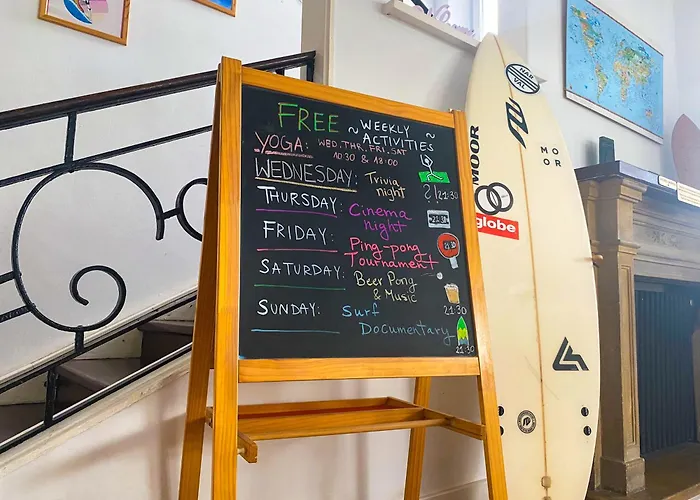 FREE ~ WEEKLY ~
ACTIVITIES
YOGA: WED, THR, FRI, SAT
10:30 & 18:00
WEDNESDAY: Trivia
night
21:30
THURSDAY: Cinema
night
21:30
FRIDAY: Ping-pong
Tournament
21:30
SATURDAY: Beer Pong
& Music
21:30
SUNDAY: Surf
Documentary
21:30
MOOR
MOOR
globe